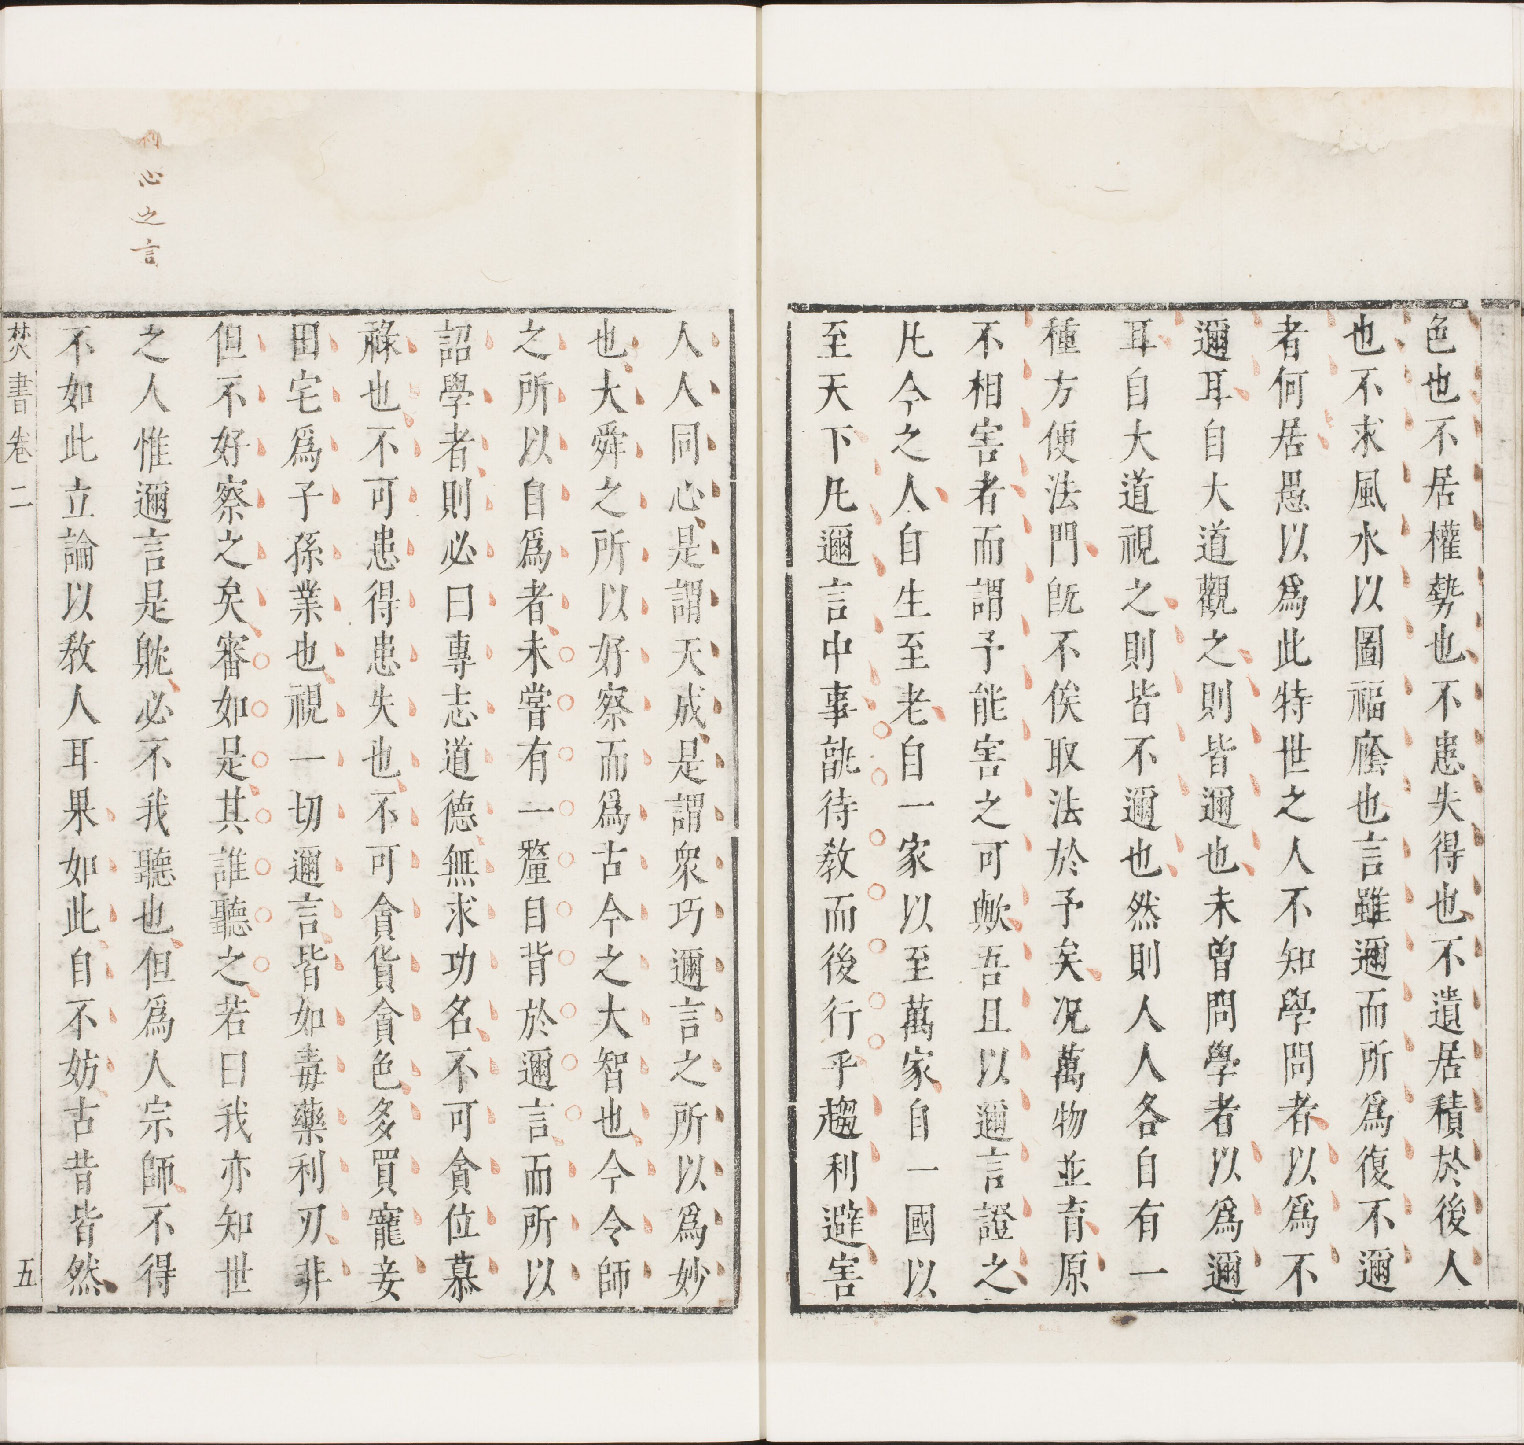 色也不居權勢也不患失得也不遺居積於後人
也不求風水以圖福廕也言雖邇而所爲復不邇
者何居愚以爲此特世之人不知學問者以爲不
邇耳自大道觀之則皆邇也未曾問學者以爲邇
耳自大道視之則皆不邇也然則人人各自有一
種方便法門旣不俟取法於予矣况萬物並育原
不相害者而謂予能害之可歟吾且以邇言證之
凢今之人自生至老自一家以至萬家自一國以
至天下凢邇言中事孰待教而後行乎趨利避害
人人同心是謂天成是謂衆巧邇言之所以爲妙
也大舜之所以好察而爲古今之大智也今令師
之所以自爲者未嘗有一釐自背於邇言而所以
詔學者則必曰專志道德無求功名不可貪位慕
祿也不可患得患失也不可貪貨貪色多買寵妾
田宅爲子孫業也視一切邇言皆如毒藥利刃非
但不好察之矣審如是其誰聽之若曰我亦知世
之人惟邇言是耽必不我聽也但爲人宗師不得
不如此立論以教人耳果如此自不妨古昔皆然
心之言
焚書卷二
五